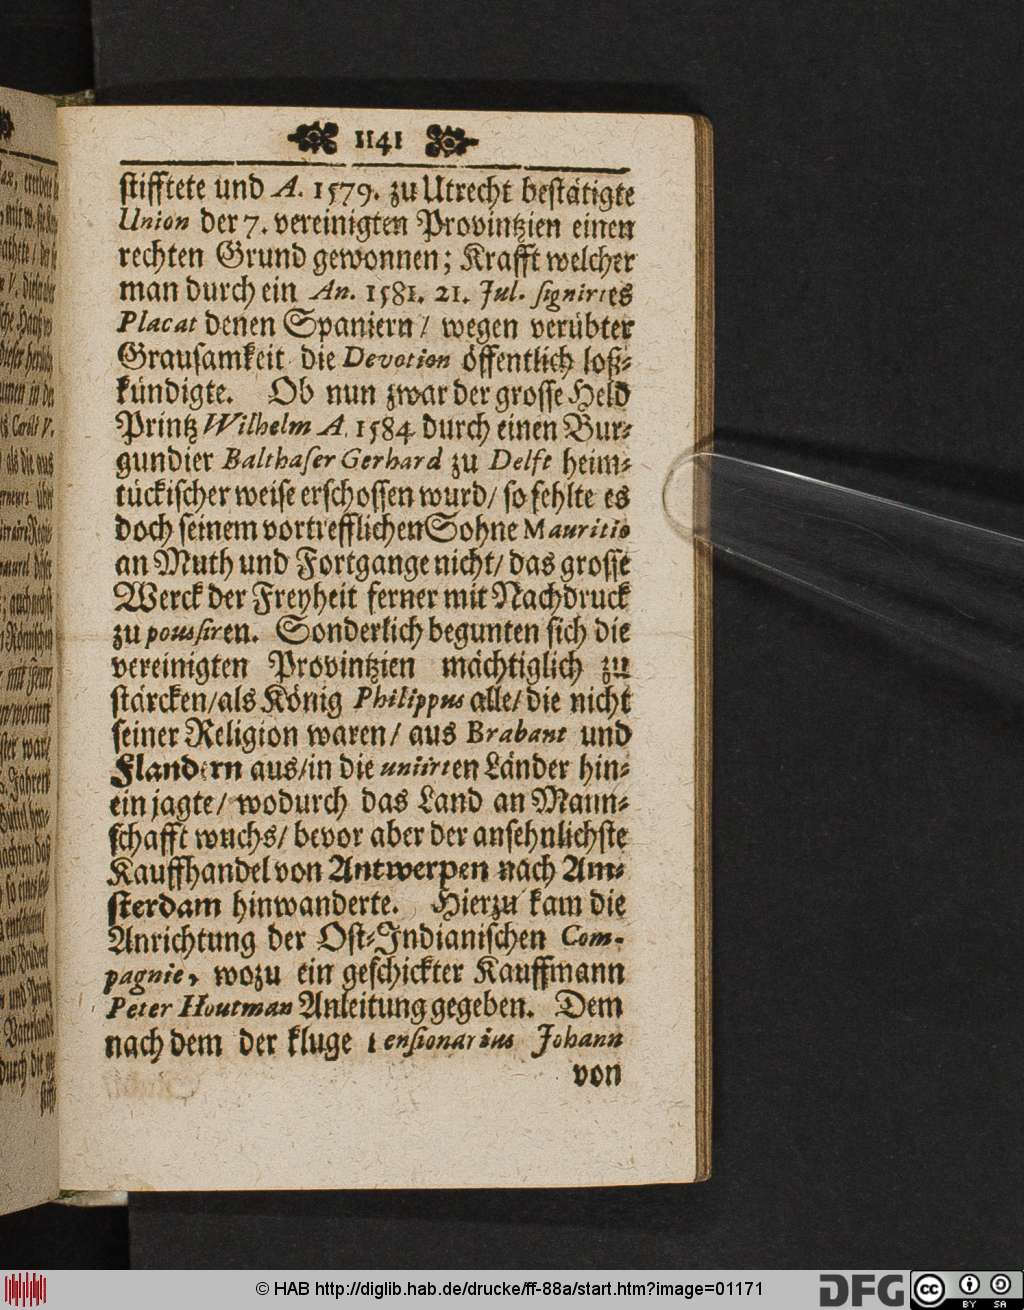 1141
stifftete und A. 1579. zu Utrecht bestätigte
Union der 7. vereinigten Provintzien einen
rechten Grund gewonnen; Krafft welcher
man durch ein An. 1581. 21. Jul. signirtes
Placat denen Spaniern / wegen verübter
Grausamkeit die Devotion öffentlich loß-
kündigte. Ob nun zwar der grosse Held
Printz Wilhelm A. 1584 durch einen Bur-
gundier Balthaser Gerhard zu Delft heim-
tückischer weise erschossen wurd / so fehlte es
doch seinem vortrefflichen Sohne Mauritio
an Muth und Fortgange nicht / das grosse
Werck der Freyheit ferner mit Nachdruck
zu poussiren. Sonderlich begunten sich die
vereinigten Provintzien mächtiglich zu
stärcken / als König Philippus alle / die nicht
seiner Religion waren / aus Brabant und
Flandern aus / in die uniirten Länder hin-
ein jagte / wodurch das Land an Mann-
schafft wuchs / bevor aber der ansehnlichste
Kauffhandel von Antwerpen nach Am-
sterdam hinwanderte. Hierzu kam die
Anrichtung der Ost-Indianischen Com-
pagnie, wozu ein geschickter Kauffmann
Peter Houtman Anleitung gegeben. Dem
nach dem der kluge Pensionarius Johann
von
© HAB http://diglib.hab.de/drucke/ff-88a/start.htm?image=01171
DFG
cc
BY SA